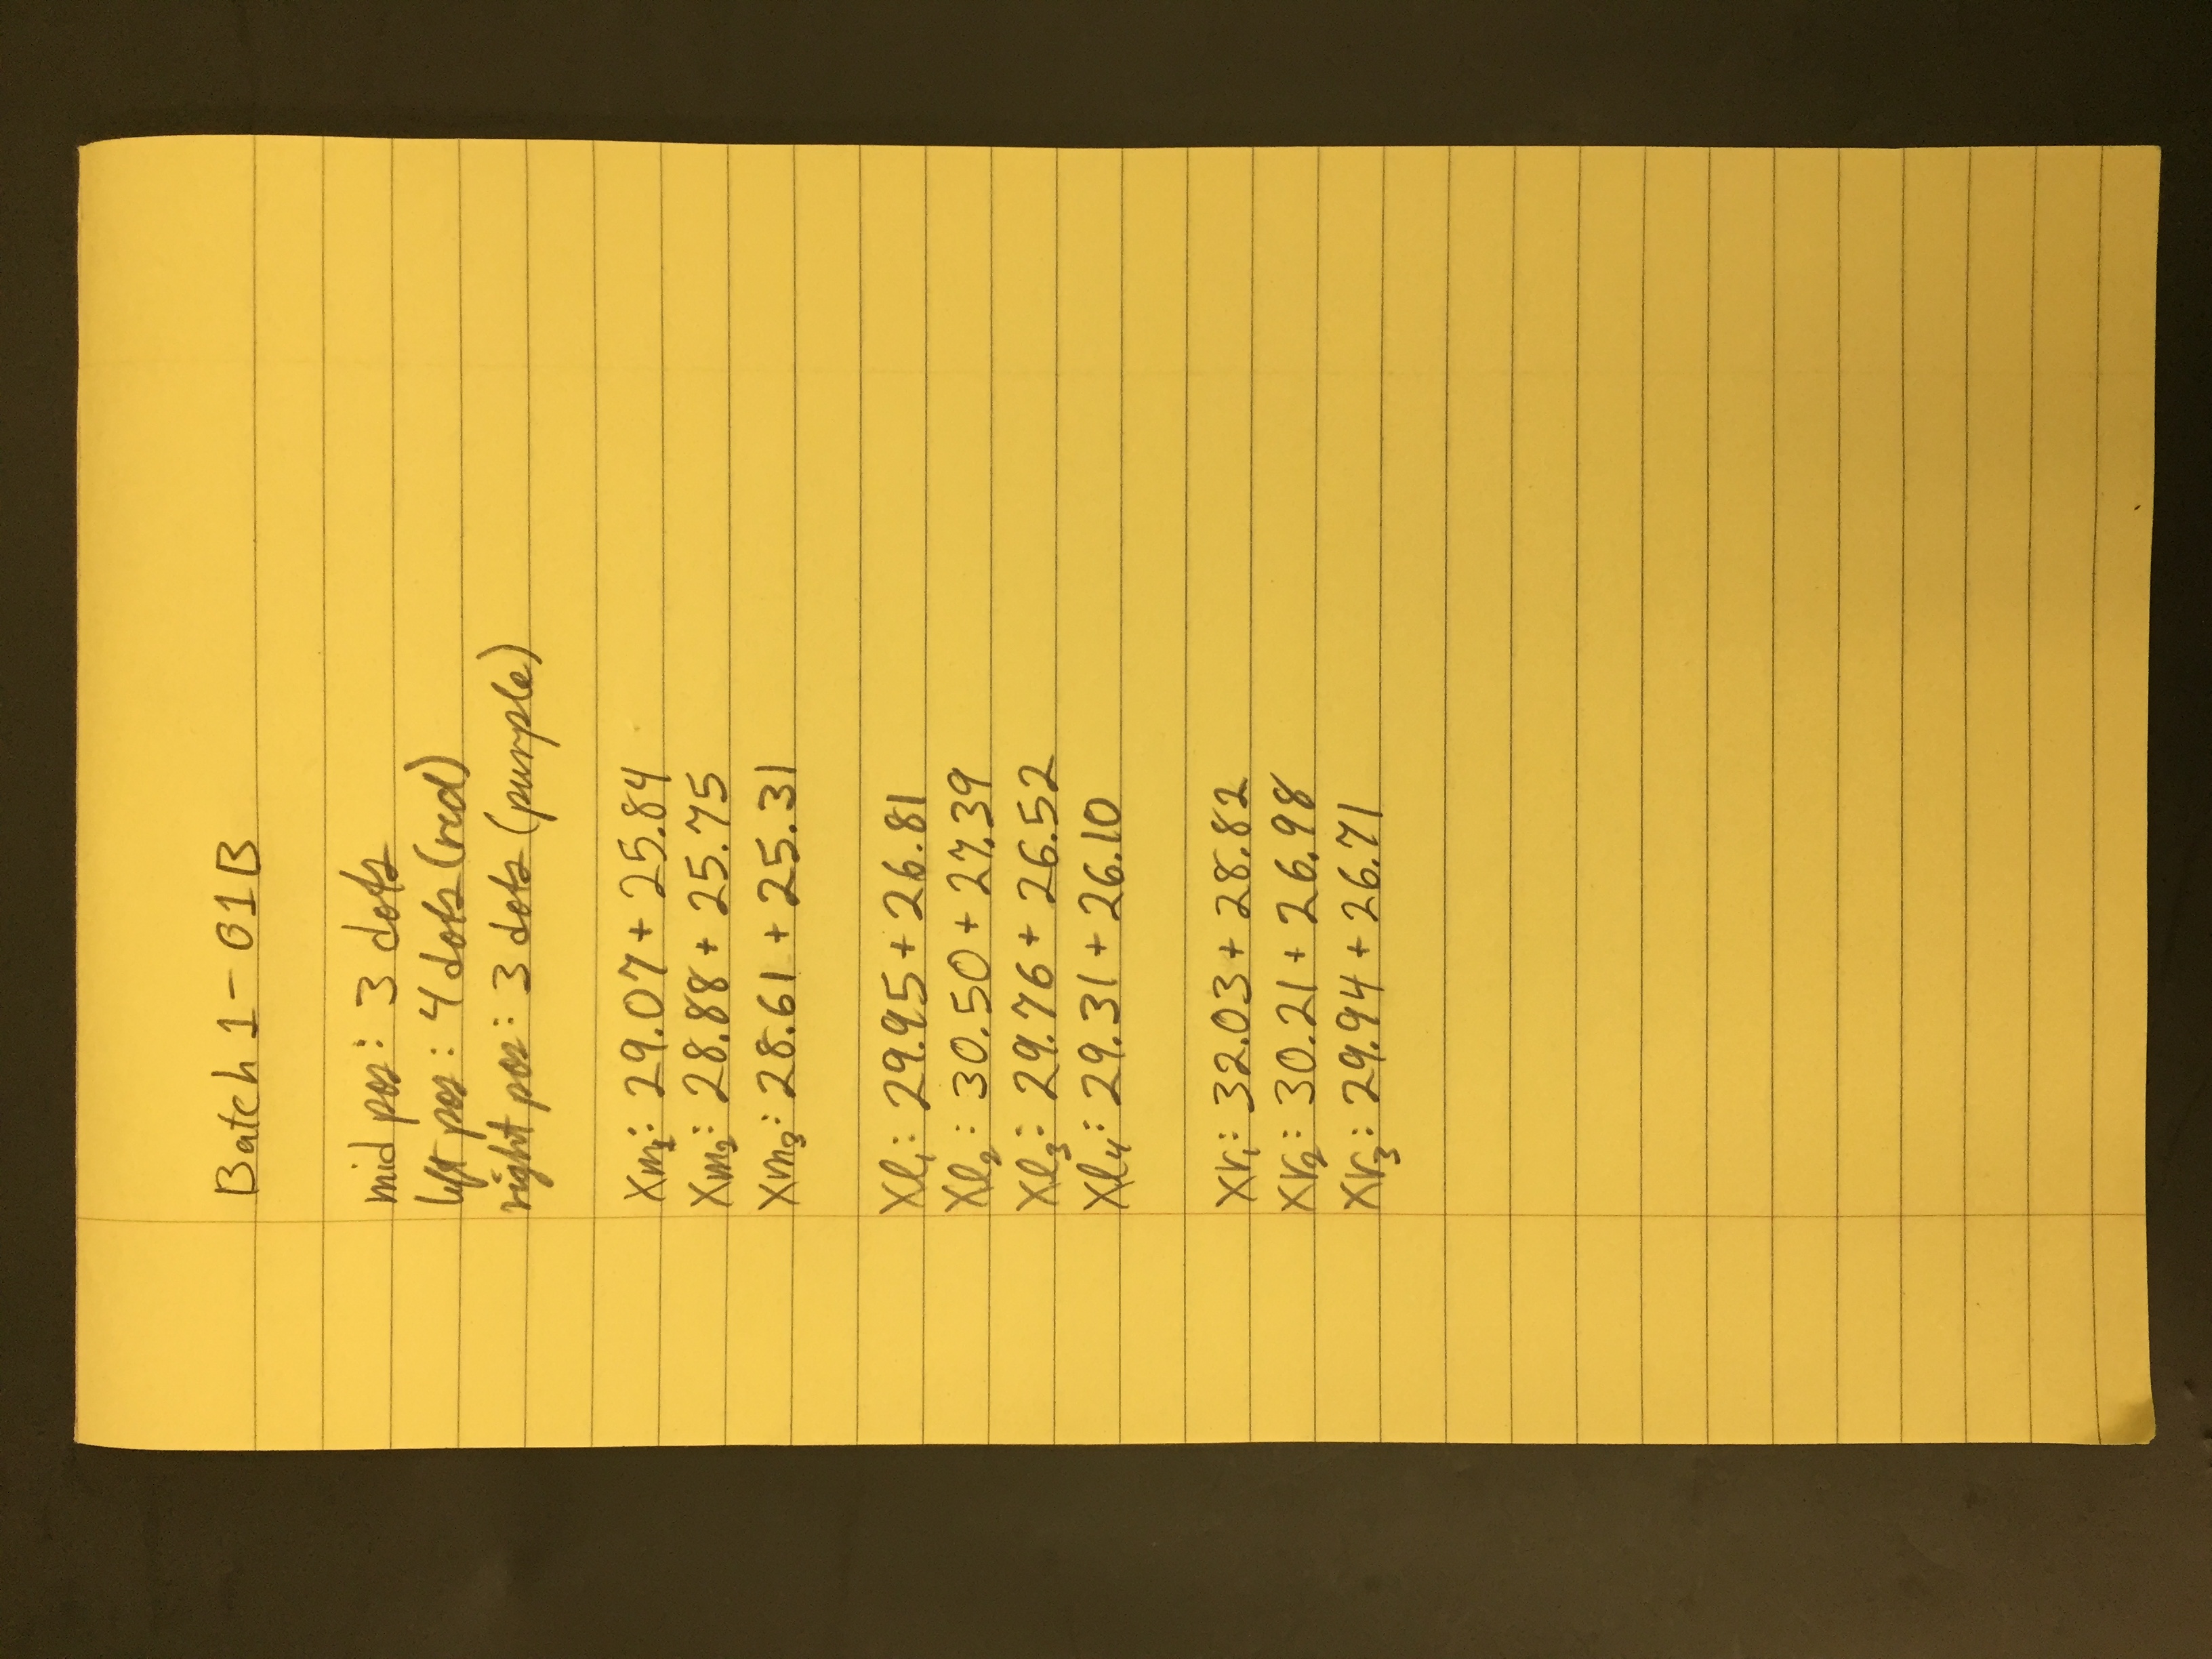 Batch 1 - 01B
mid pos: 3 dots
left pos: 4 dots (red)
right pos: 3 dots (purple)
Xm1: 29.07 + 25.84
Xm2: 28.88 + 25.75
Xm3: 28.61 + 25.31
Xl1: 29.95 + 26.81
Xl2: 30.50 + 27.39
Xl3: 29.76 + 26.52
Xl4: 29.31 + 26.10
Xr1: 32.03 + 28.82
Xr2: 30.21 + 26.98
Xr3: 29.94 + 26.71